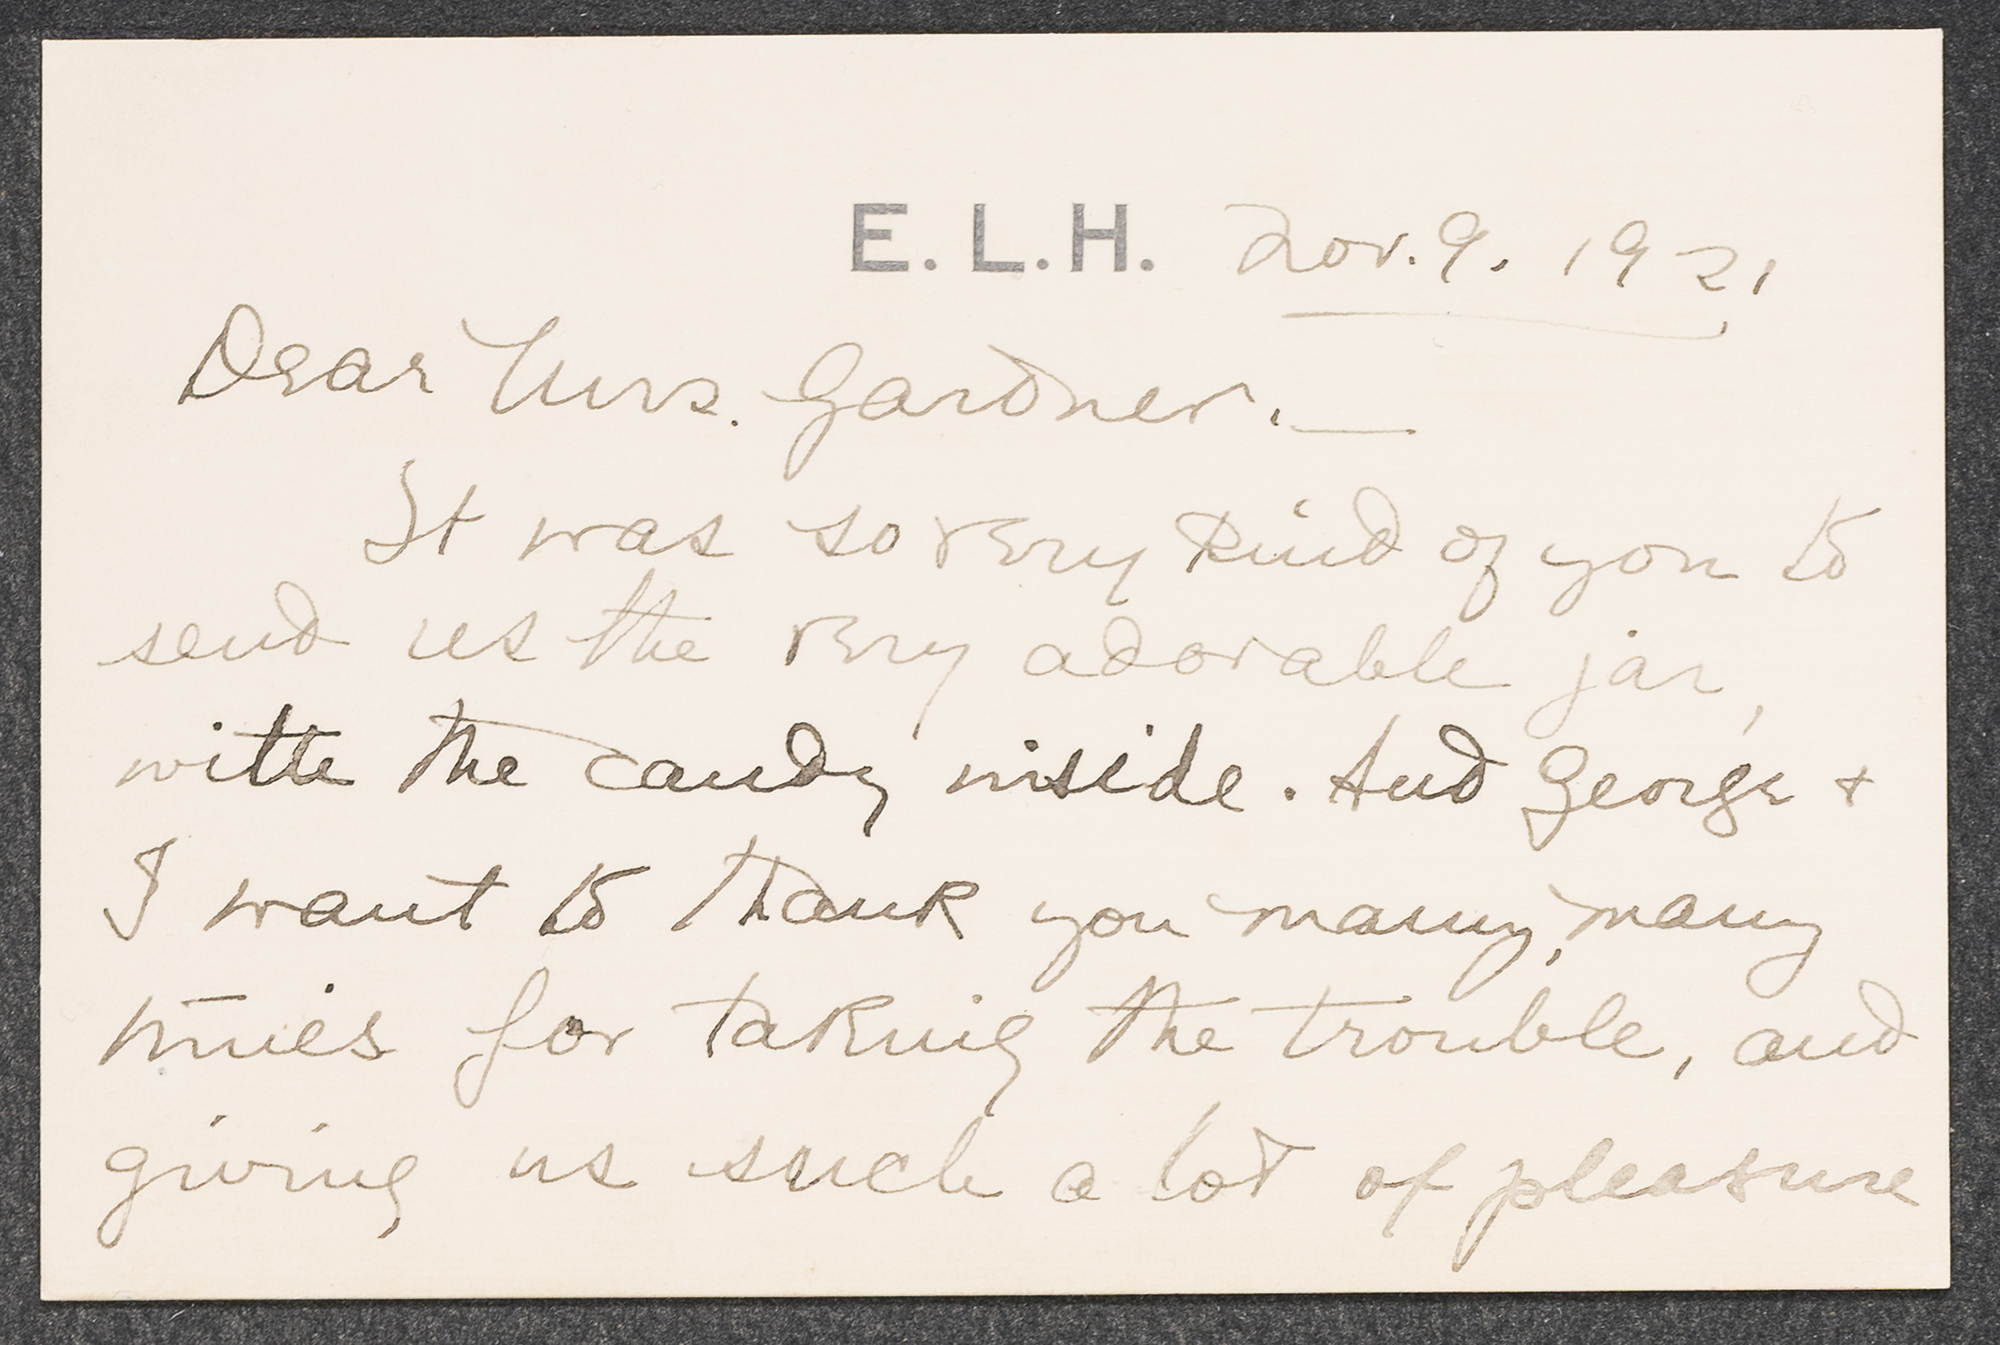 E. L. H. Nov. 9. 1921
Dear Mrs. Gardner. —
It was so very kind of you to
send us the very adorable jar,
with the candy inside. And George +
I want to thank you many, many
times for taking the trouble, and
giving us such a lot of pleasure